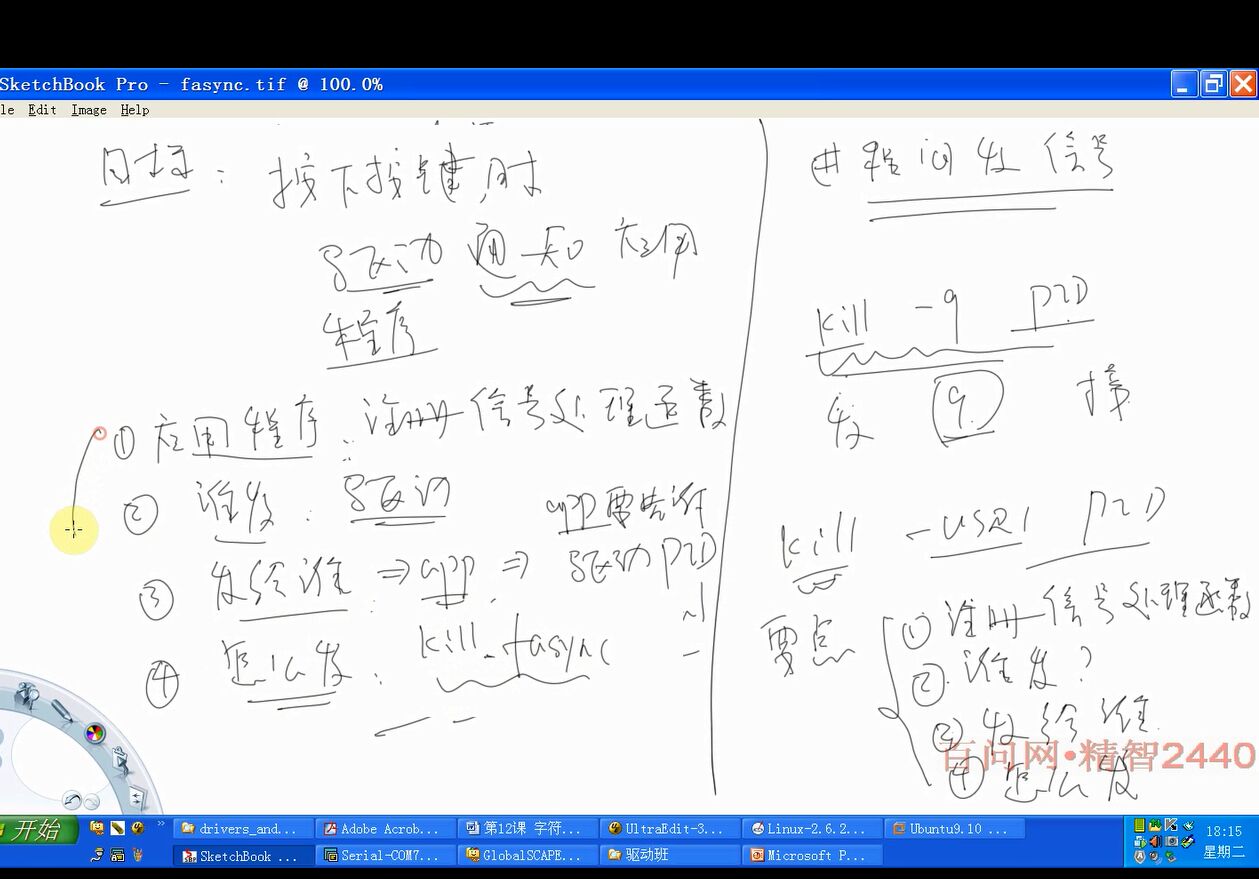 SketchBook Pro - fasync.tif @ 100.0%
le Edit Image Help
目标: 按下按键时
驱动通知应用
程序
① 应用程序: 注册信号处理函数
② 谁发: 驱动
app要告诉
驱动PID
③ 发给谁: ⇒ app ⇒
④ 怎么发: kill_fasync
进程间发信号
kill -9 PID
发 9 接
kill -USR1 PID
要点
① 注册信号处理函数
② 谁发?
③ 发给谁
④ 怎么发
百问网•精智2440
开始
drivers_and...
Adobe Acrob...
第12课 字符...
UltraEdit-3...
Linux-2.6.2...
Ubuntu9.10 ...
18:15
SketchBook ...
Serial-COM7...
GlobalSCAPE...
驱动班
Microsoft P...
星期二